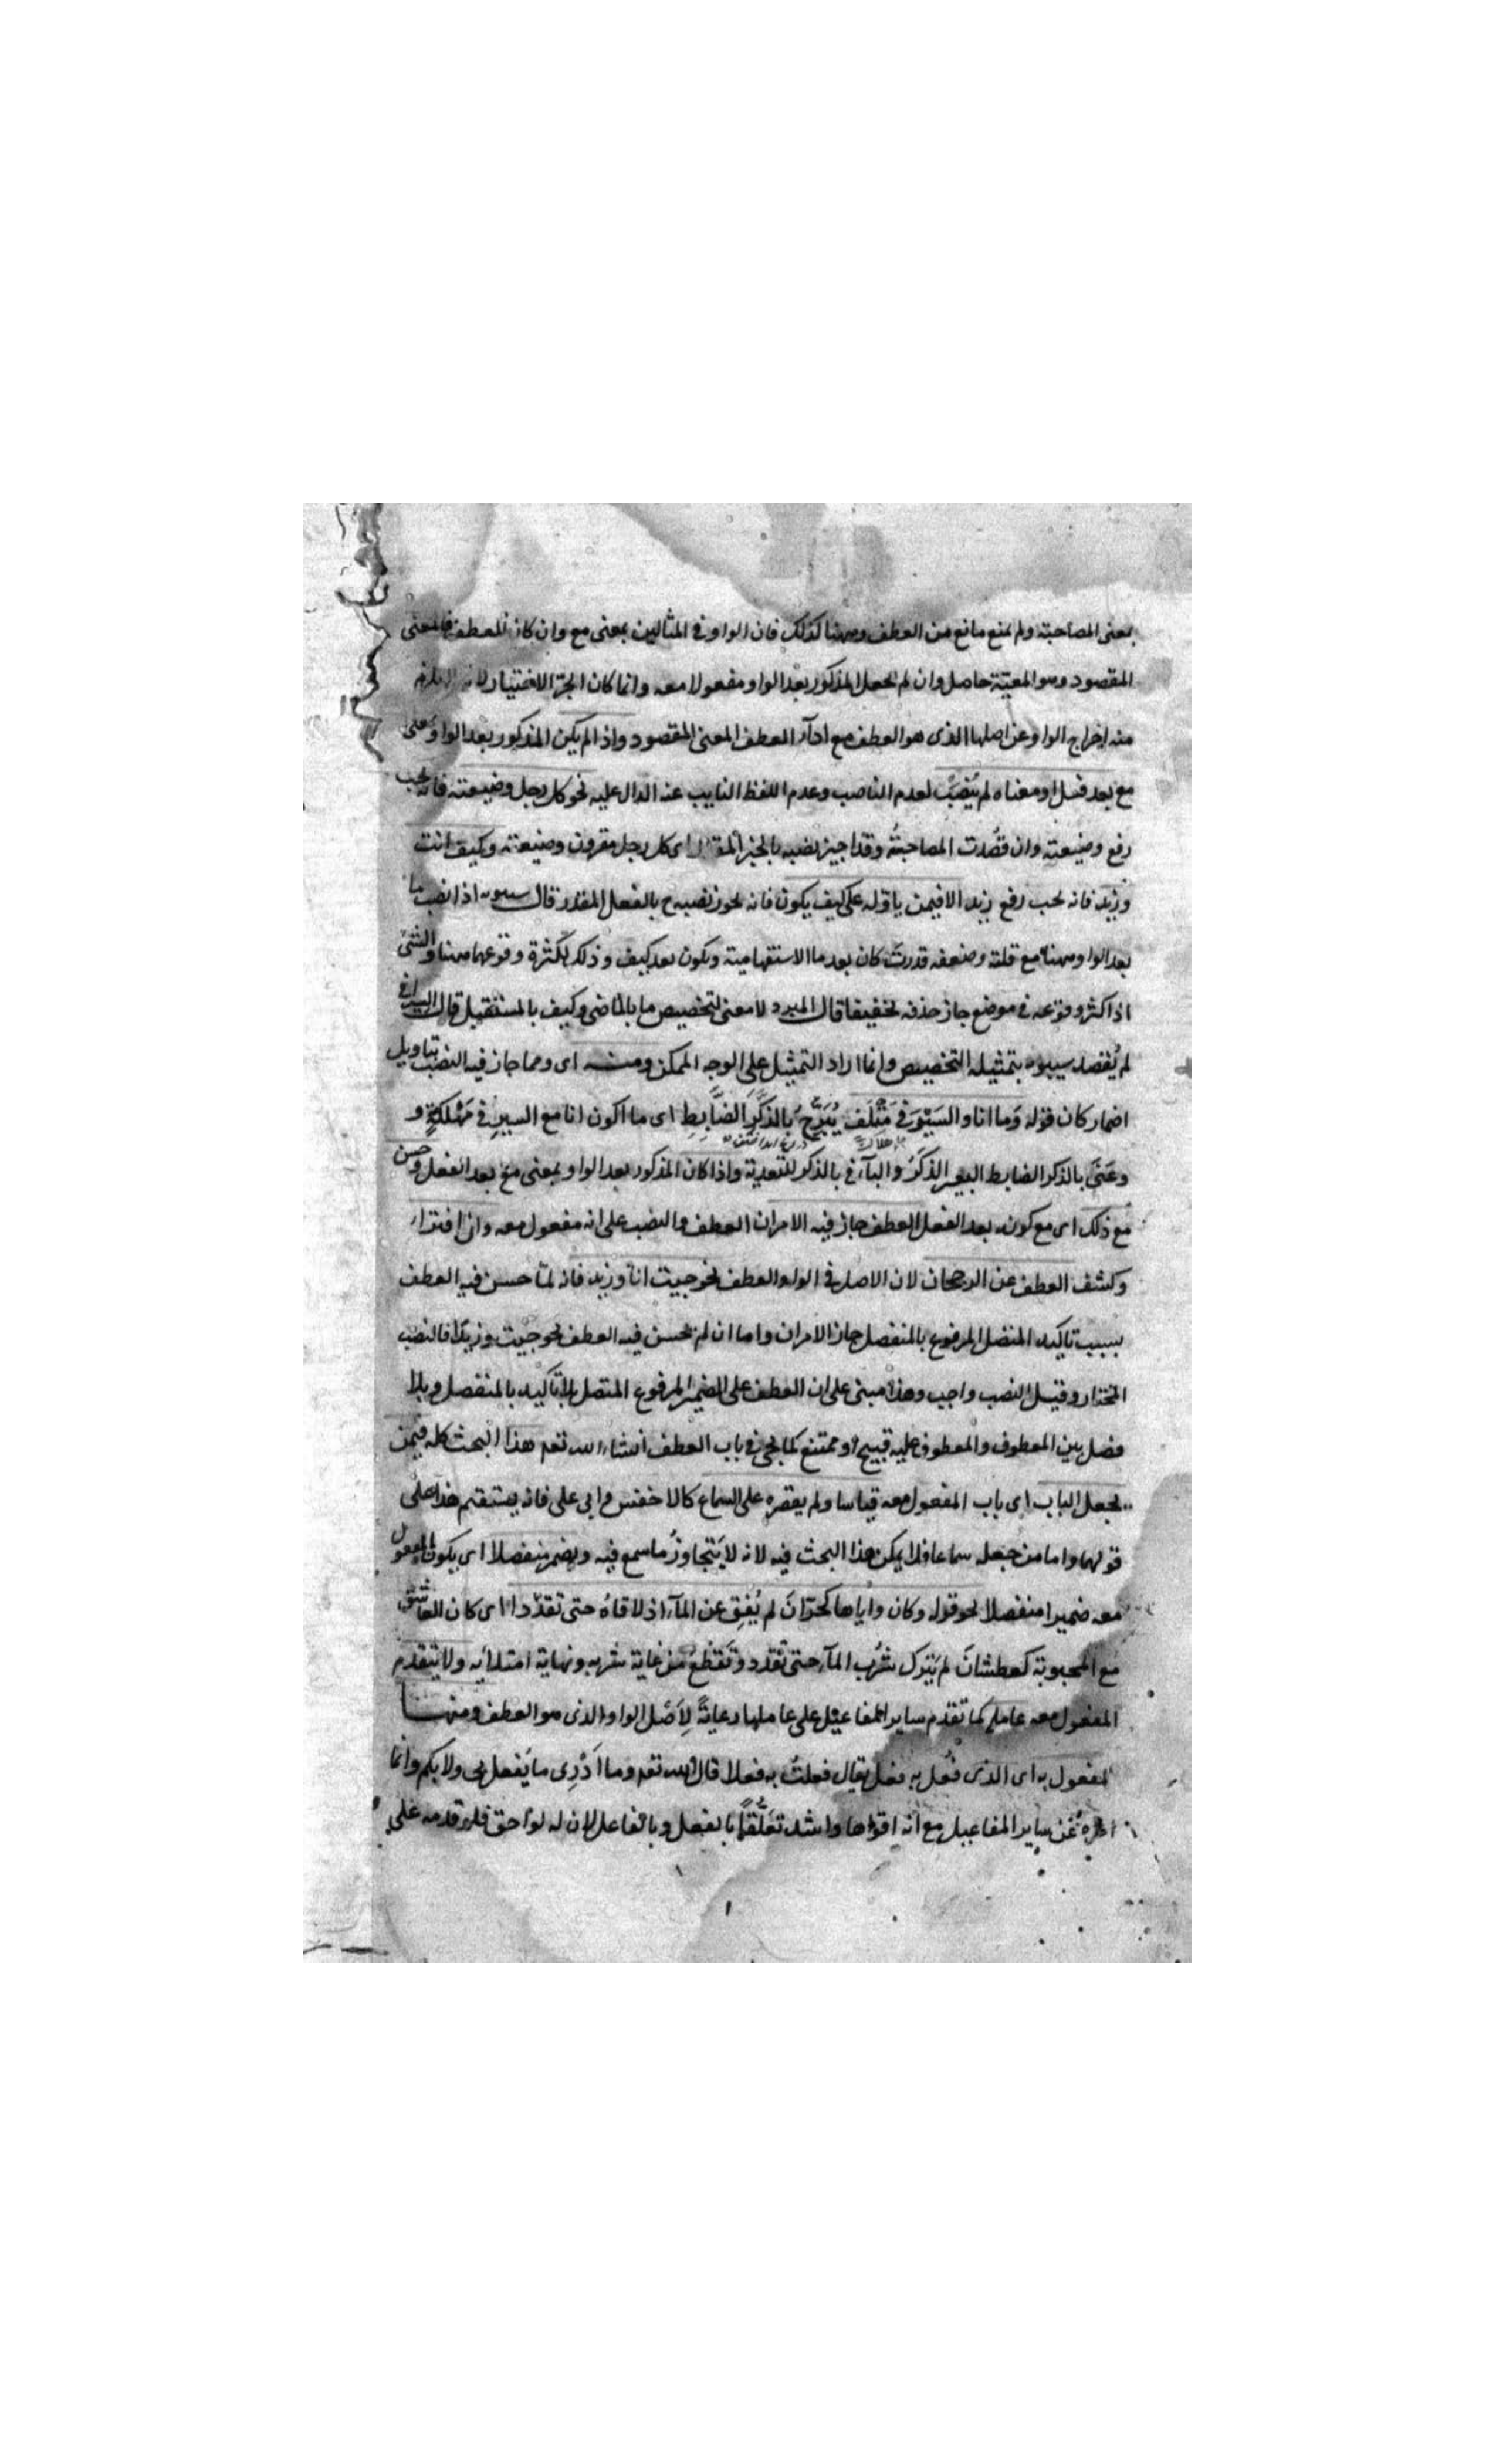 بمعنى المصاحبة ولم يمنع مانع من العطف وههنا كذلك فان الواو فى المثالين بمعنى مع وان كان للعطف فالمعنى
المقصود وهو المعيّة حاصل وان لم يجعل المذكور بعد الواو مفعولا معه وانما كان الجرّ الاختيار لانه
منه اخراج الواو عن اصلها الذى هو العطف مع ادآء العطف المعنى المقصود واذا لم يكن المذكور بعد الواو على
مع بعد فعل او معناه لم يُنصَبْ لعدم الناصب وعدم اللفظ النايب عنه الدال عليه نحو كل رجل وضيعته فانه يجب
رفع وضيعته وان قُصدت المصاحبةُ وقد اجيز نصبه بالخبر المقدر اى كل رجل مقرون وضيعته وكيف انت
وزيد فانه يجب رفع زيد الا فيمن ياوّله على كيف يكون فانه يجوز نصبه ح بالفعل المقدر قال سيبويه اذا نصب ما
بعد الواو ههنا مع قلته وضعفه قدرتَ كان بعد ما الاستفهامية ويكون بعد كيف وذلك لكثرة وقوعهما ههنا والشئ
اذا كثر وقوعه فى موضع جاز حذفه تخفيفا قال المبرد لا معنى لتخصيص ما بالماضى وكيف بالمستقبل قال السيرافى
لم يُقصد سيبويه بتمثيله التخصيص وانما اراد التمثيل على الوجه الممكن ومنه اى ومما جاز فيه النصب بتاويل
اضمار كان قوله وَما انا والسَيْرَ فى مَتْلَفٍ يُبَرّحُ بالذكَرِ الضّابطِ اى ما اكون انا مع السيرِ فى مَهْلكةٍ و
وعَنَى بالذكر الضابط البعير الذكَرَ والبآء فى بالذكر للتعدية واذا كان المذكور بعد الواو بمعنى مع بعد الفعل وحسن
مع ذلك اى مع كونه بعد الفعل العطف جاز فيه الامران العطف والنصب على انه مفعول معه وان
وكشف العطف عن الرجحان لان الاصل فى الواو العطف نحو جيت انا وزيد فانه لمّا حسن فيه العطف
بسبب تاكيد المتصل المرفوع بالمنفصل جاز الامران واما ان لم يحسن فيه العطف نحو جيت وزيدا فالنصب
المختار وقيل النصب واجب وهذا مبنى على ان العطف على الضمير المرفوع المتصل بلا تأكيد بالمنفصل وبلا
فصل بين المعطوف والمعطوف عليه قبيح او ممتنع كما يجئ فى باب العطف انشاء الله تعم هذا البحث كله فيمن
يجعل الباب اى باب المفعول معه قياسا ولم يقصره على السماع كالاخفش وابى على فانه يستقيم هذا على
قولهما واما من جعله سماعا فلا يمكن هذا البحث فيه لانه لا يَتجاوزُ ما سمع فيه ويضمر منفصلا اى يكون المفعول
معه ضميرا منفصلا نحو قوله وكان واياها كحرّانَ لم يُفِق عن المآء اذ لاقاهُ حتى تقدّدا اى كان العاشق
مع المحبوبة كعطشانَ لم يَترك شُربَ المآء حتى تقدد وتَقطّعُ من غاية شربه ونهاية امتلائِه ولا يتقدم
المفعول معه عامله كما تقدم ساير المفاعيل على عاملها رعايةً لِاَصْل الواو الذى هو العطف ومنها
المفعول به اى الذى فُعل به فعل يقال فعلتُ به فعلا قال الله تعم وما اَدْرِى ما يُفعل بى ولا بكم وانما
اخره عن ساير المفاعيل مع انه اقواها واشد تعلُّقاً بالفعل وبالفاعل لان له لواحق فلو قدمه على